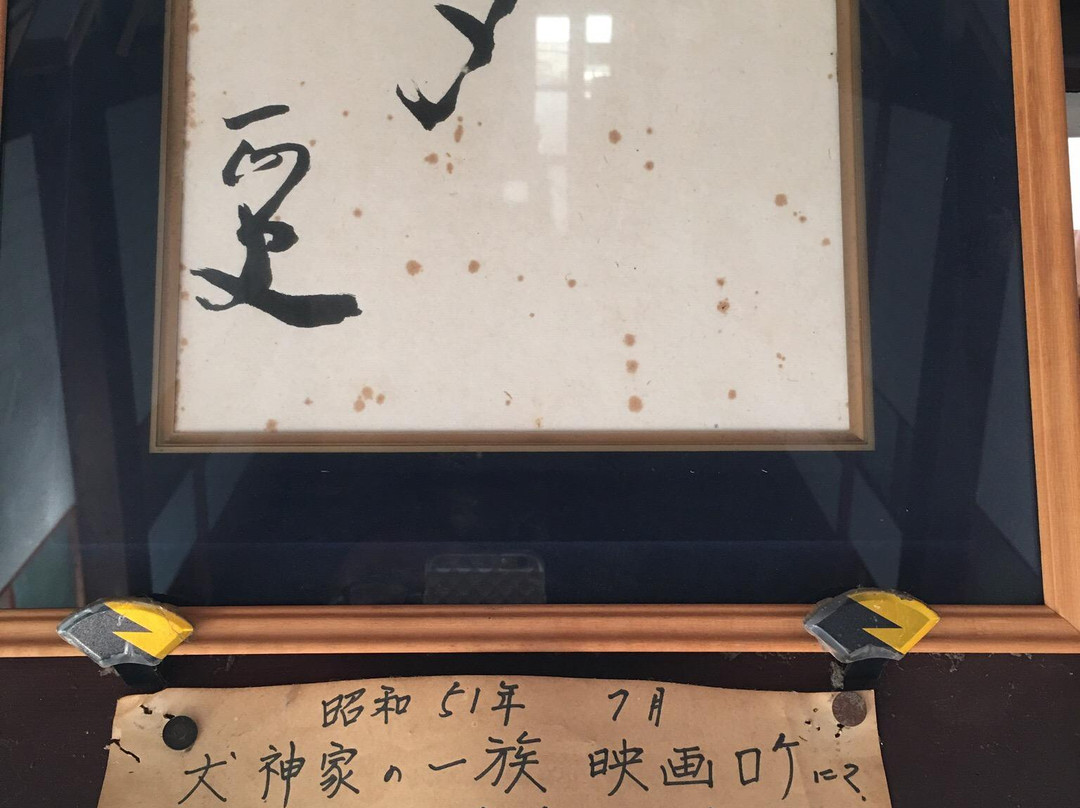 正史
昭和 51年 7月
犬神家の一族 映画ロケにて